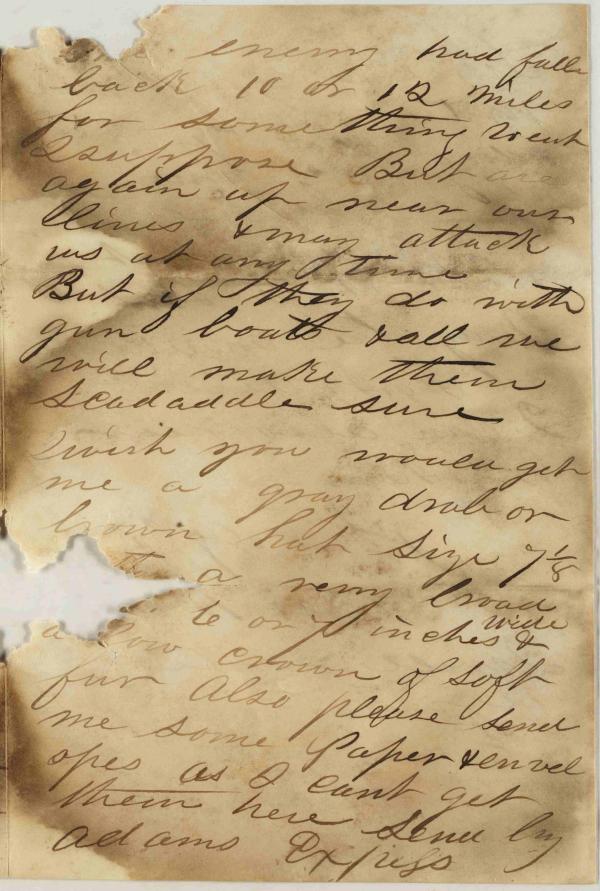 the enemy had falle
back 10 or 12 miles
for some thing I cut
I suppose But are
again up near our
lines & may attack
us at any time
But if they do with
gun boats & all we
will make them
Scadaddle sure
I wish you would get
me a gray drab or
brown hat size 7 1/8
a very broad
6 or 7 inches wide &
a low crown of soft
fur Also please send
me some Paper & envel
opes as I cant get
them here Send by
adams Express